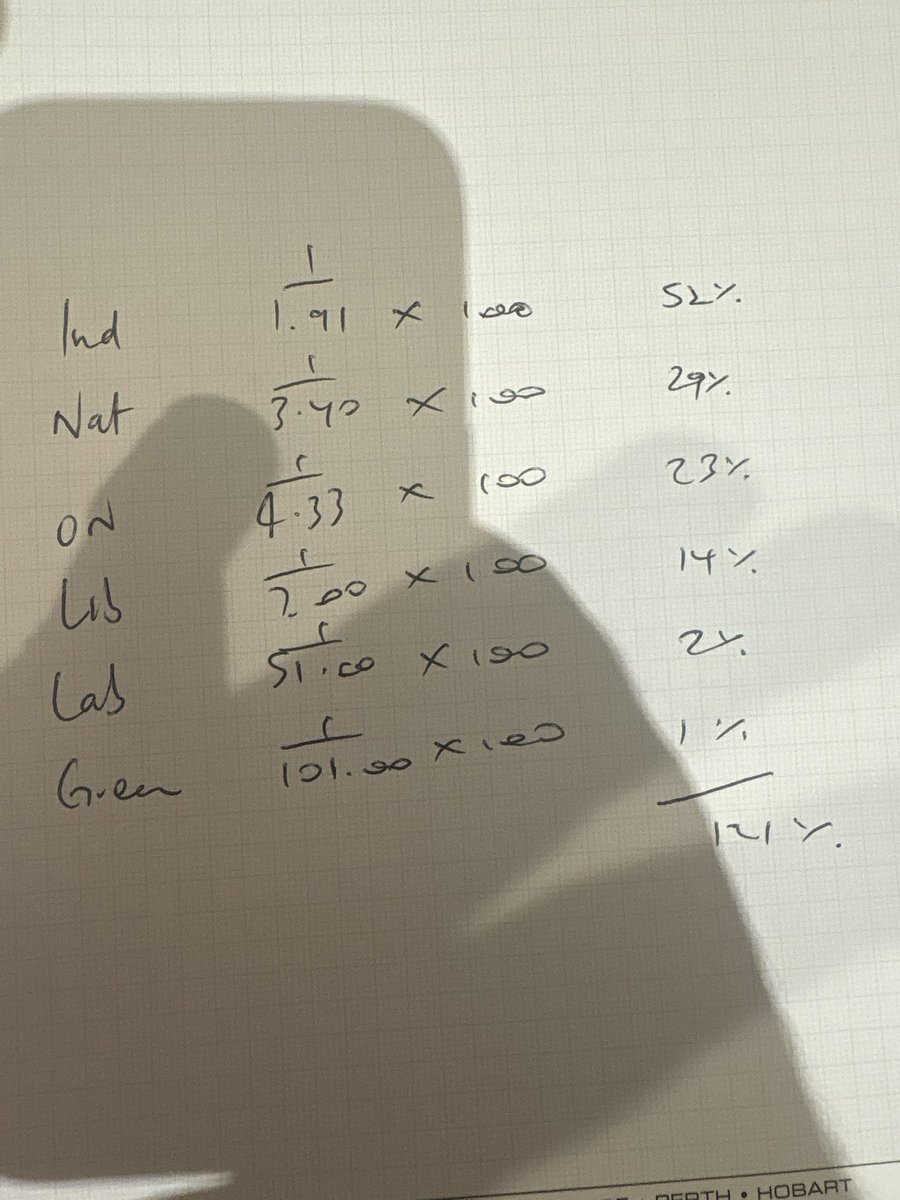 Ind 1/1.91 × 100 52%
Nat 1/3.40 × 100 29%
ON 1/4.33 × 100 23%
Lib 1/7.00 × 100 14%
Lab 1/51.00 × 100 2%
Green 1/101.00 × 100 1%
121%
PERTH • HOBART